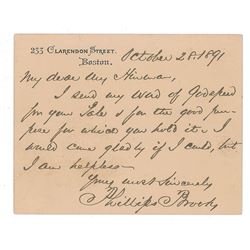 233 CLARENDON STREET.
Boston.
October 28. 1891
My dear Mrs Hinman,
I send my word of Godspeed
for your Sale & for the good pur-
pose for which you hold it. I
would come gladly if I could, but
I am helpless.
Yours most sincerely
Phillips Brooks